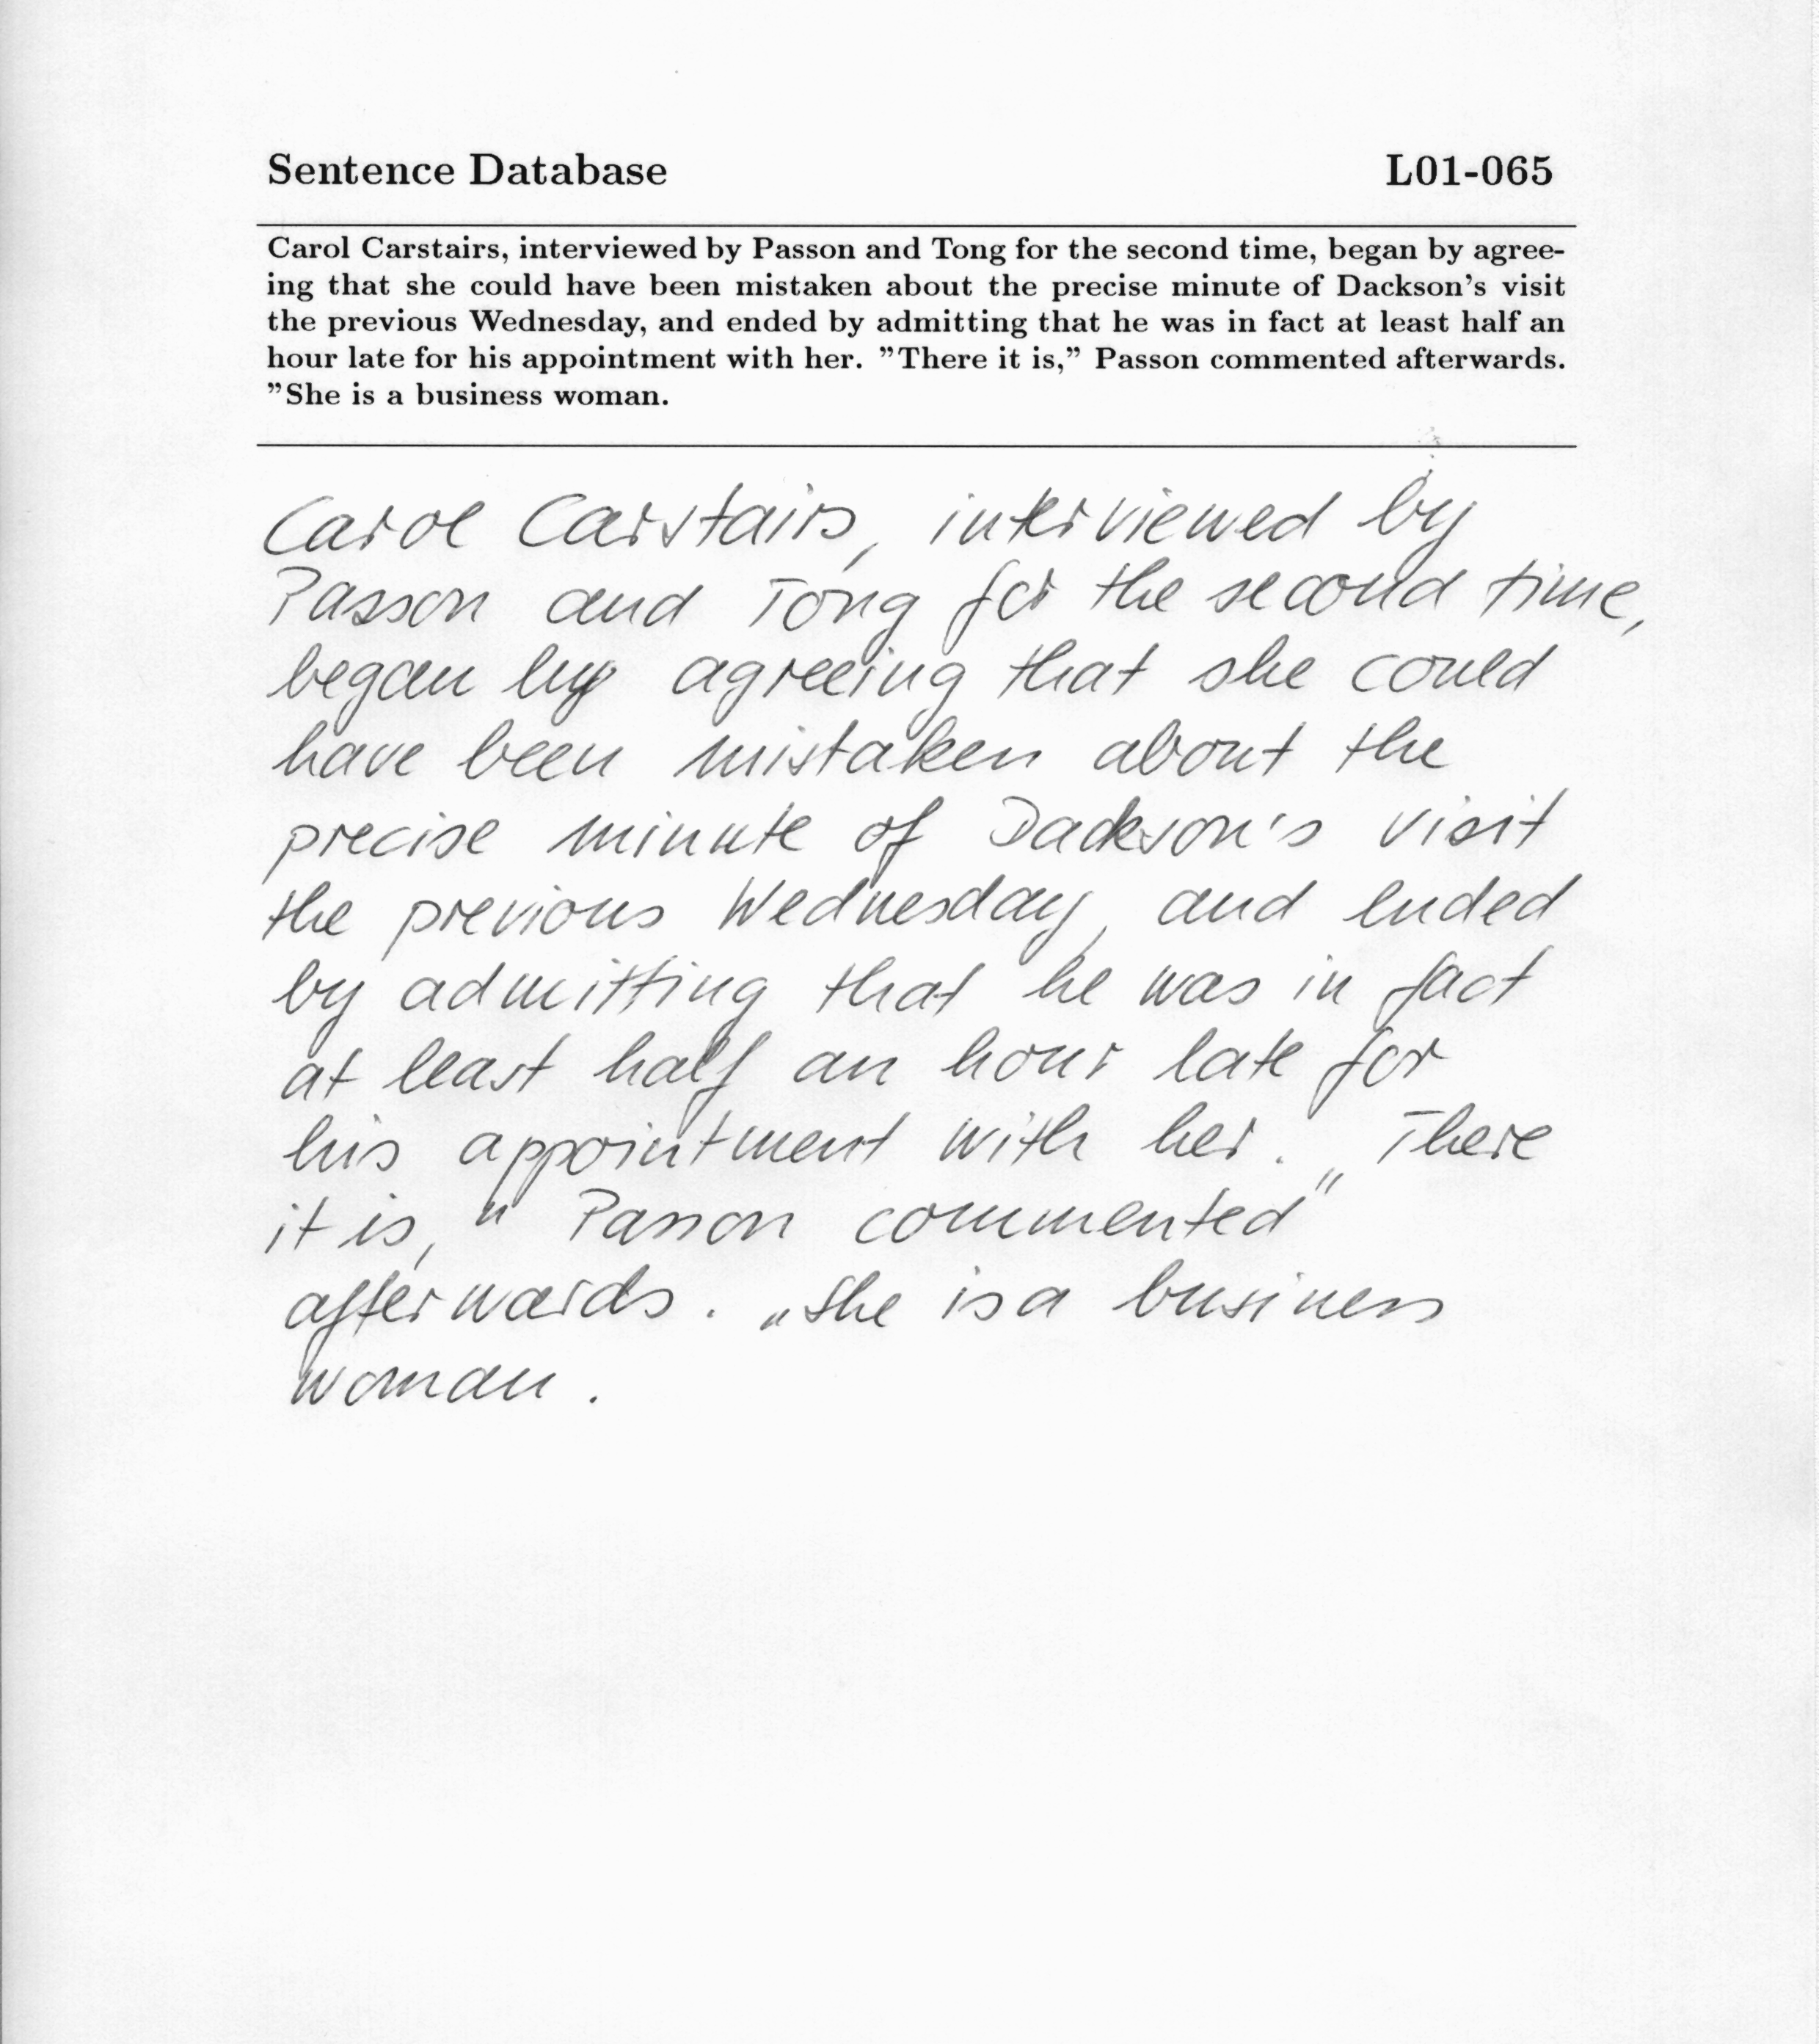 Sentence Database L01-065
Carol Carstairs, interviewed by Passon and Tong for the second time, began by agree-
ing that she could have been mistaken about the precise minute of Dackson's visit
the previous Wednesday, and ended by admitting that he was in fact at least half an
hour late for his appointment with her. ”There it is,” Passon commented afterwards.
”She is a business woman.
Carol Carstairs, interviewed by
Passon and Tong for the second time,
began by agreeing that she could
have been mistaken about the
precise minute of Dackson's visit
the previous Wednesday, and ended
by admitting that he was in fact
at least half an hour late for
his appointment with her. „There
it is, " Passon commented
afterwards. „She is a business
woman.